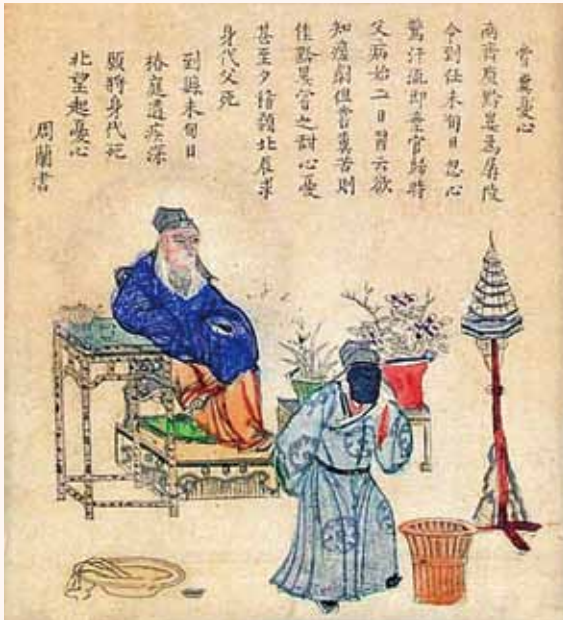 嘗糞憂心
南齊庾黔婁為孱陵
令到任未旬日忽心
驚汗流即棄官歸時
父病始二日醫云欲
知瘥劇但嘗糞苦則
佳黔婁嘗之甜心憂
甚至夕稽顙北辰求
身代父死
到縣未旬日
椿庭遺疾深
願將身代死
北望起憂心
周蘭書